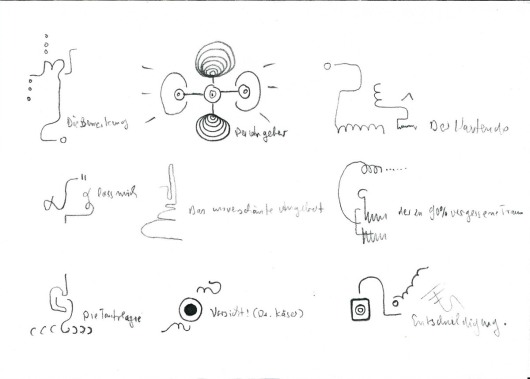 Die Bemerkung
Ratgeber
Der Wartende
Lass mich
Das unverschämte Angebot
der zu 90% vergessene Traum
Die
Vorsicht! (Da. Käse)
Entschuldigung.